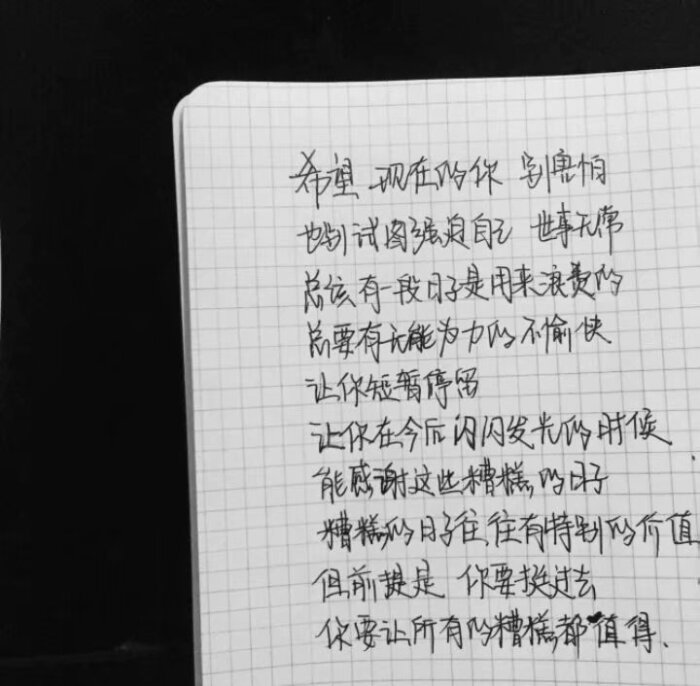 希望 现在的你 别害怕
也别试图强迫自己 世事无常
总该有一段日子是用来浪费的
总要有无能为力的不愉快
让你短暂停留
让你在今后闪闪发光的时候
能感谢这些糟糕的日子
糟糕的日子往往有特别的价值
但前提是 你要挺过去
你要让所有的糟糕都值得.